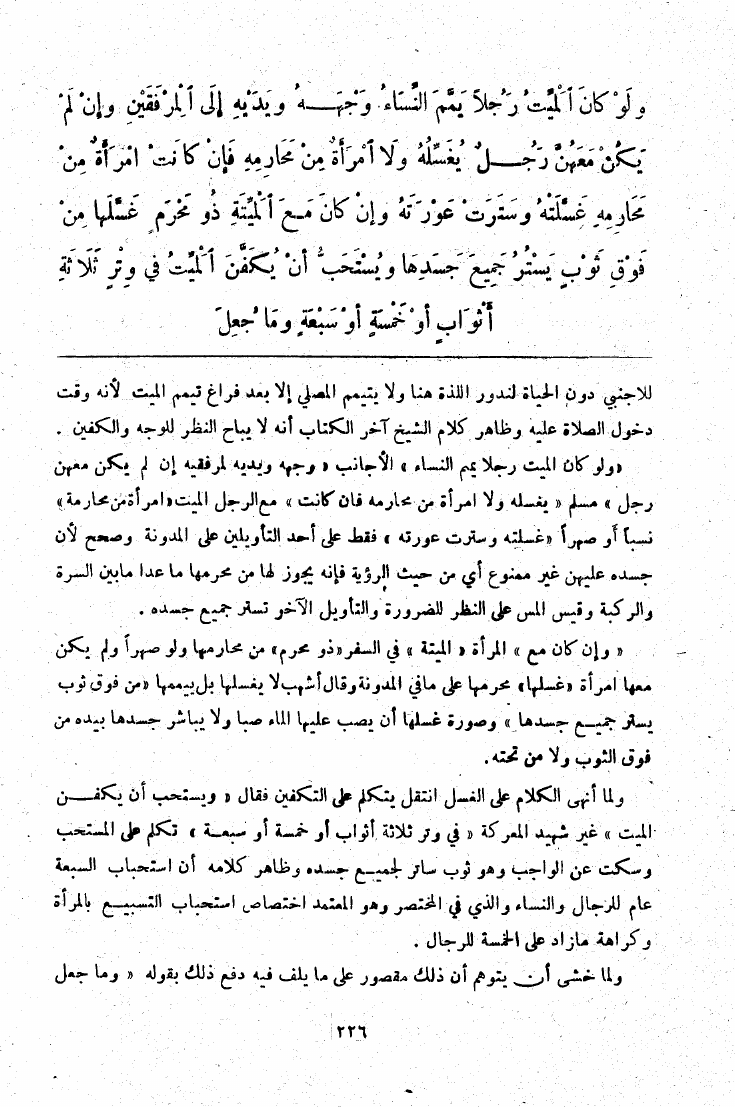 وَلَوْ كَانَ ٱلْمَيِّتُ رَجُلاً يَمَّمَ النِّسَاءُ وَجْهَهُ وَيَدَيْهِ إِلَى ٱلْمِرْفَقَيْنِ وَإِنْ لَمْ
يَكُنْ مَعَهُنَّ رَجُلٌ يُغَسِّلُهُ وَلَا ٱمْرَأَةٌ مِنْ مَحَارِمِهِ فَإِنْ كَانَتْ امْرَأَةٌ مِنْ
مَحَارِمِهِ غَسَّلَتْهُ وَسَتَرَتْ عَوْرَتَهُ وَإِنْ كَانَ مَعَ ٱلْمَيِّتَةِ ذُو مَحْرَمٍ غَسَّلَهَا مِنْ
فَوْقِ ثَوْبٍ يَسْتُرُ جَمِيعَ جَسَدِهَا وَيُسْتَحَبُّ أَنْ يُكَفَّنَ ٱلْمَيِّتُ فِي وِتْرٍ ثَلَاثَةِ
أَثْوَابٍ أَوْ خَمْسَةٍ أَوْ سَبْعَةٍ وَمَا جُعِلَ
للاجنبي دون الحياة لندور اللذة هنا ولا يتيمم المصلي إلا بعد فراغ تيمم الميت لأنه وقت
دخول الصلاة عليه وظاهر كلام الشيخ آخر الكتاب أنه لا يباح النظر للوجه والكفين .
«ولو كان الميت رجلا يمم النساء» الأجانب « وجهه ويديه لمرفقيه إن لم يكن معهن
رجل » مسلم « يغسله ولا امرأة من محارمه فان كانت » مع الرجل الميت «امرأة من محارمة»
نسباً أو صهراً «غسلته وسترت عورته » فقط على أحد التأويلين على المدونة وصحح لأن
جسده عليهن غير ممنوع أي من حيث الرؤية فإنه يجوز لها من محرمها ما عدا مابين السرة
والركبة وقيس المس على النظر للضرورة والتأويل الآخو تستر جميع جسده .
« وإن كان مع » المرأة « الميتة » في السفر «ذو محرم» من محارمها ولو صهراً ولم يكن
معها امرأة «غسلها» محرمها على مافي المدونة وقال أشهب لا يغسلها بل ييممها «من فوق ثوب
يستر جميع جسدها » وصورة غسلها أن يصب عليها الماء صبا ولا يباشر جسدها بيده من
فوق الثوب ولا من تحته.
ولما أنهى الكلام على الغسل انتقل يتكلم على التكفين فقال « ويستحب أن يكفن
الميت » غير شهيد المعركة « في وتر ثلاثة أثواب أو خمسة أو سبعة » تكلم على المستحب
وسكت عن الواجب وهو ثوب ساتر لجميع جسده وظاهر كلامه أن استحباب السبعة
عام للرجال والنساء والذي في المختصر وهو المعتمد اختصاص استحباب التسبيع بالمرأة
وكراهة مازاد على الخمسة للرجال .
ولما خشى أن يتوهم أن ذلك مقصور على ما يلف فيه دفع ذلك بقوله « وما جعل
٢٢٦